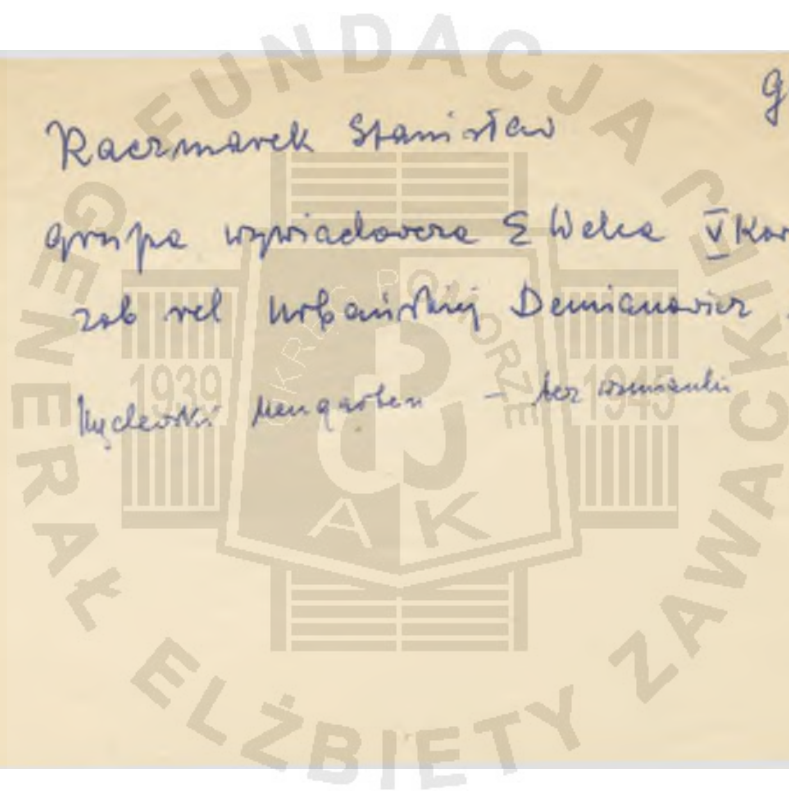 g
Kaczmarek Stanisław
grupa wywiadowcza E Weka V Kor
zob rel Urbańskiej Demianowicz
– bez wzmianki
FUNDACJA
GENERAŁ ELŻBIETY ZAWACKIEJ
OKRĘG POMORZE
1939 1945
AK